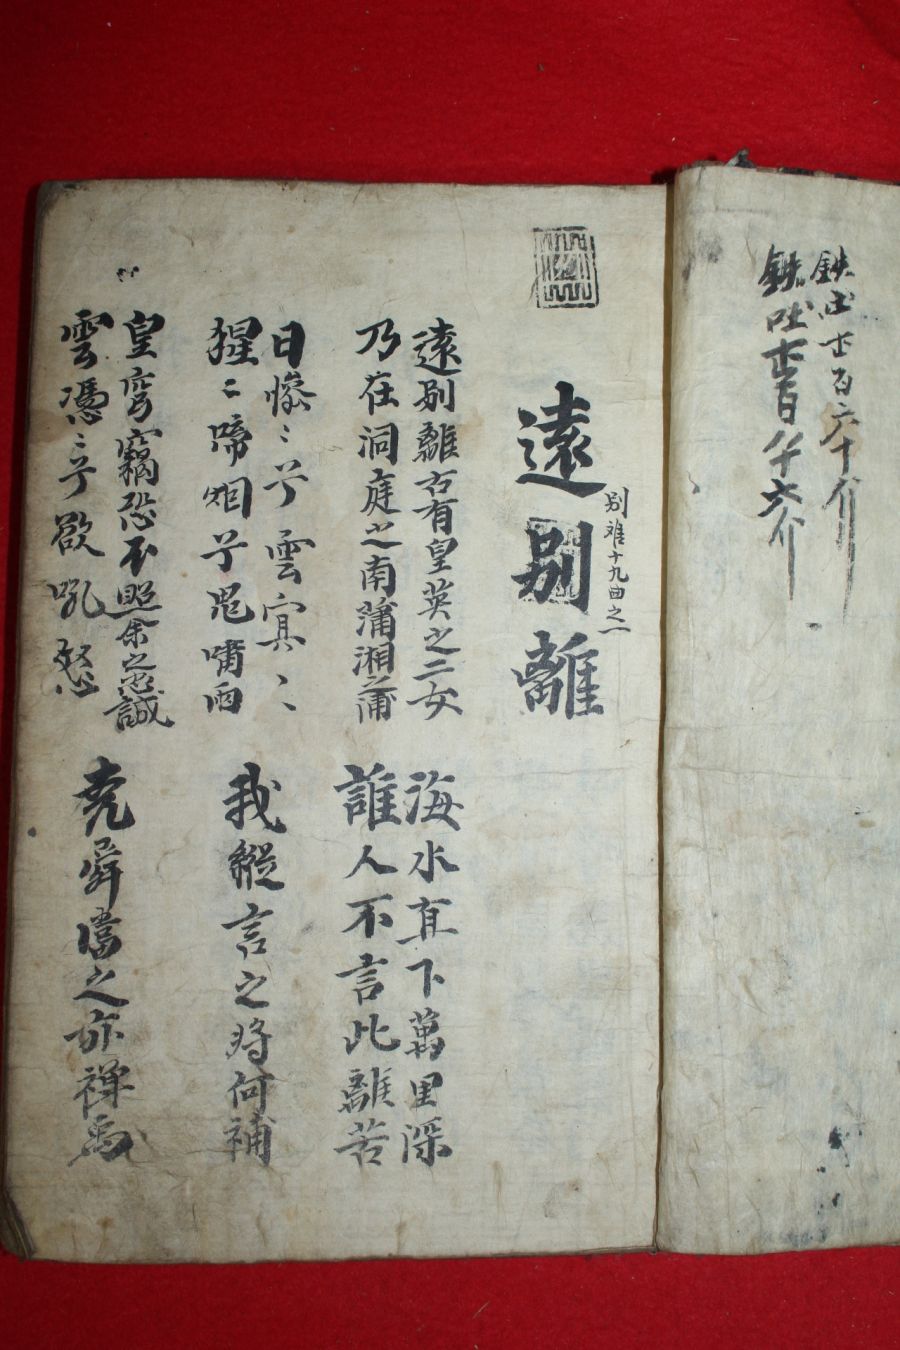 遠別離
別離十九曲之一
遠別離古有皇英之二女
乃在洞庭之南蒲湘之浦
海水直下萬里深
誰人不言此離苦
日慘〻兮雲冥〻
猩〻啼烟兮鬼嘯雨
我縱言之將何補
皇穹竊恐不照余之忠誠
雲憑〻兮欲吼怒
堯舜當之亦禪禹